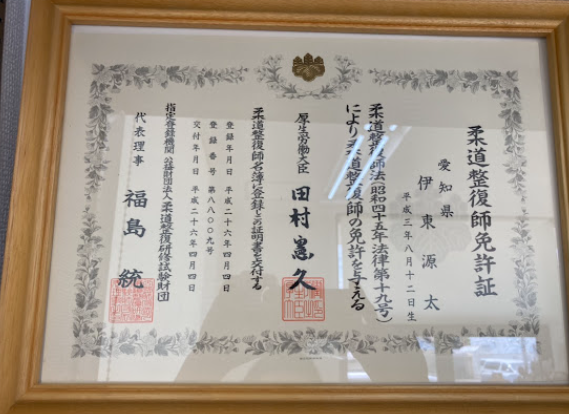 柔道整復師免許証
愛知県
伊東源太
平成三年八月十二日生
柔道整復師法(昭和四十五年法律第十九号)
により柔道整復師の免許を与える
厚生労働大臣 田村憲久
柔道整復師名簿に登録しこの証明書を交付する
登録年月日 平成二十六年四月四日
登録番号 第八八〇〇九号
交付年月日 平成二十六年四月四日
指定登録機関 公益財団法人柔道整復研修試験財団
代表理事 福島統